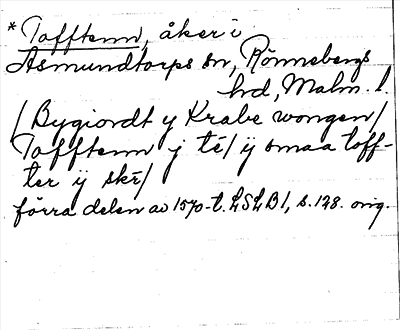 * Tofftenn, åker i
Asmundtorps sn, Rönnebergs
hd, Malm. l.
/ Bygiordt y Krabe wongen/
Tofftenn j té/ ÿ smaa toff-
ter ÿ ské/
förra delen av 1570-t. LSLB1, s. 128. orig.